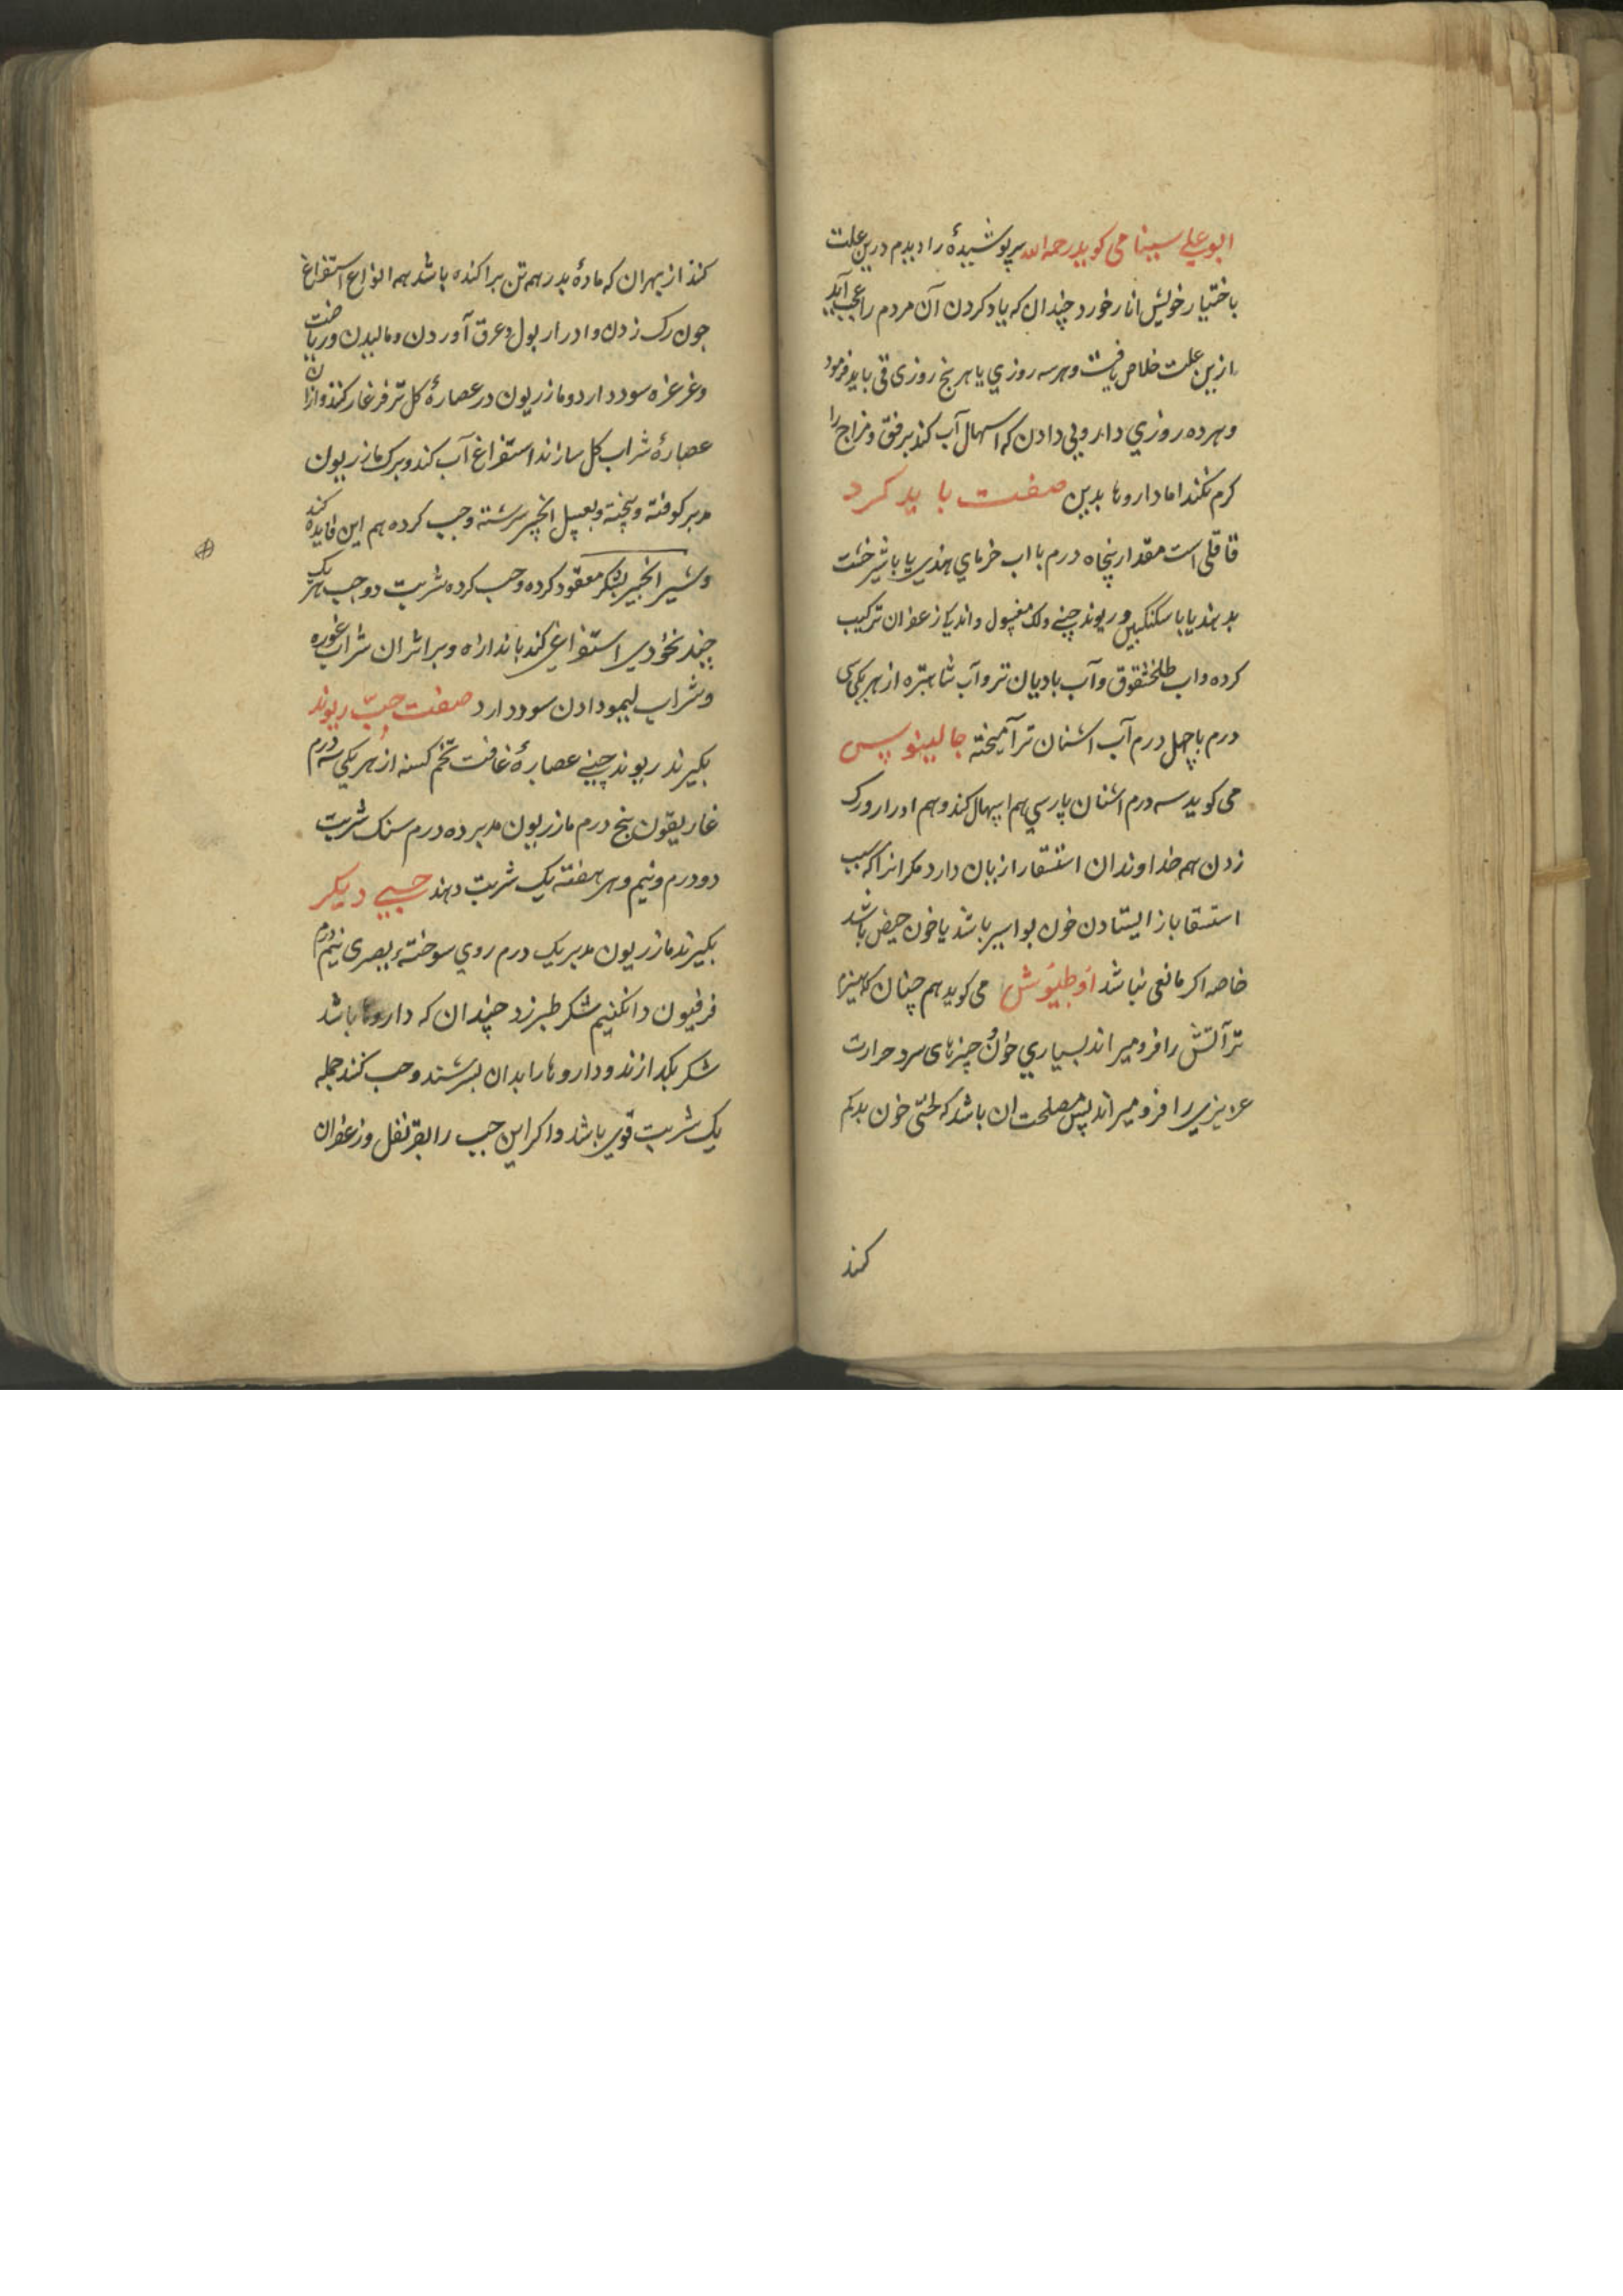 ابو علی سینا می کوید رحمه الله سرپوشیدۀ را دیدم درین علت
باختیار خویش انار خورد چندان که یاد کردن آن مردم را عجب آید
ازین علت خلاص یافت و هر سه روزی یا هر پنج روزی قی باید فرمود
و هر ده روزی دارویی دادن که اسهال آب کند برفق و مزاج را
کرم نکند اما داروها بدین صفت باید کرد
قاقلی است مقدار پنجاه درم با اب خرمای هندی یا با شیرخشت
بدهند یا با سکنکبین و ریوند چینی و لک مغسول و اندکی زعفران ترکیب
کرده و اب طلخشقوق و آب بادیان تر و آب شاهتره از هر یکی سی
درم با چهل درم آب اشنان تر آمیخته جالینوس
می کوید سه درم اشنان پارسی هم اسهال کند و هم ادرار و رک
زدن هم خداوندان استسقا را زیان دارد مکر انرا که سبب
استسقا باز ایستادن خون بواسیر باشد یا خون حیض باشد
خاصه اکر مانعی نباشد اوطیوش می کوید هم چنان که هیزم
تر آتش را فرو میراند بسیاری خون چیزهای سرد حرارت
عزیزی را فرو میراند پس مصلحت ان باشد که لختی خون بدیکم
کند
کند از بهر ان که مادۀ بد در همه تن پراکنده باشد همه انواع استفراغ
جون رک زدن و ادرار بول و عرق آوردن و مالیدن و ریاضت
و غرغره سود دارد و مازریون در عصارۀ کل تر فرغار کنند و ازان
عصارۀ شراب کل سازند استفراغ آب کند و برک مازریون
مدبر کوفته و پخته و بعسل انجیر سرشته و حب کرده هم این فایده کند
و شیر انجیر بشکر معقود کرده و حب کرده شربت دو حب هر یک
چند نخودی استفراغی کند باندازه و بر اثر ان شراب غوره
و شراب لیمو دادن سود دارد صفت حبّ ریوند
بکیرند ریوند چینی عصارۀ غافت تخم کسنه از هر یکی سه درم
غاریقون پنج درم مازریون مدبر ده درم سنک شربت
دو درم و نیم و هر هفته یک شربت دهند حبی دیکر
بکیرند مازریون مدبر یک درم روی سوخته بصری نیم درم
فرفیون دانکنیم شکر طبرزد چندان که داروها باشد
شکر بکدازند و داروها را بدان بسرشند و حب کنند جمله
یک شربت قوی باشد و اکر این حب را بقرنفل و زعفران